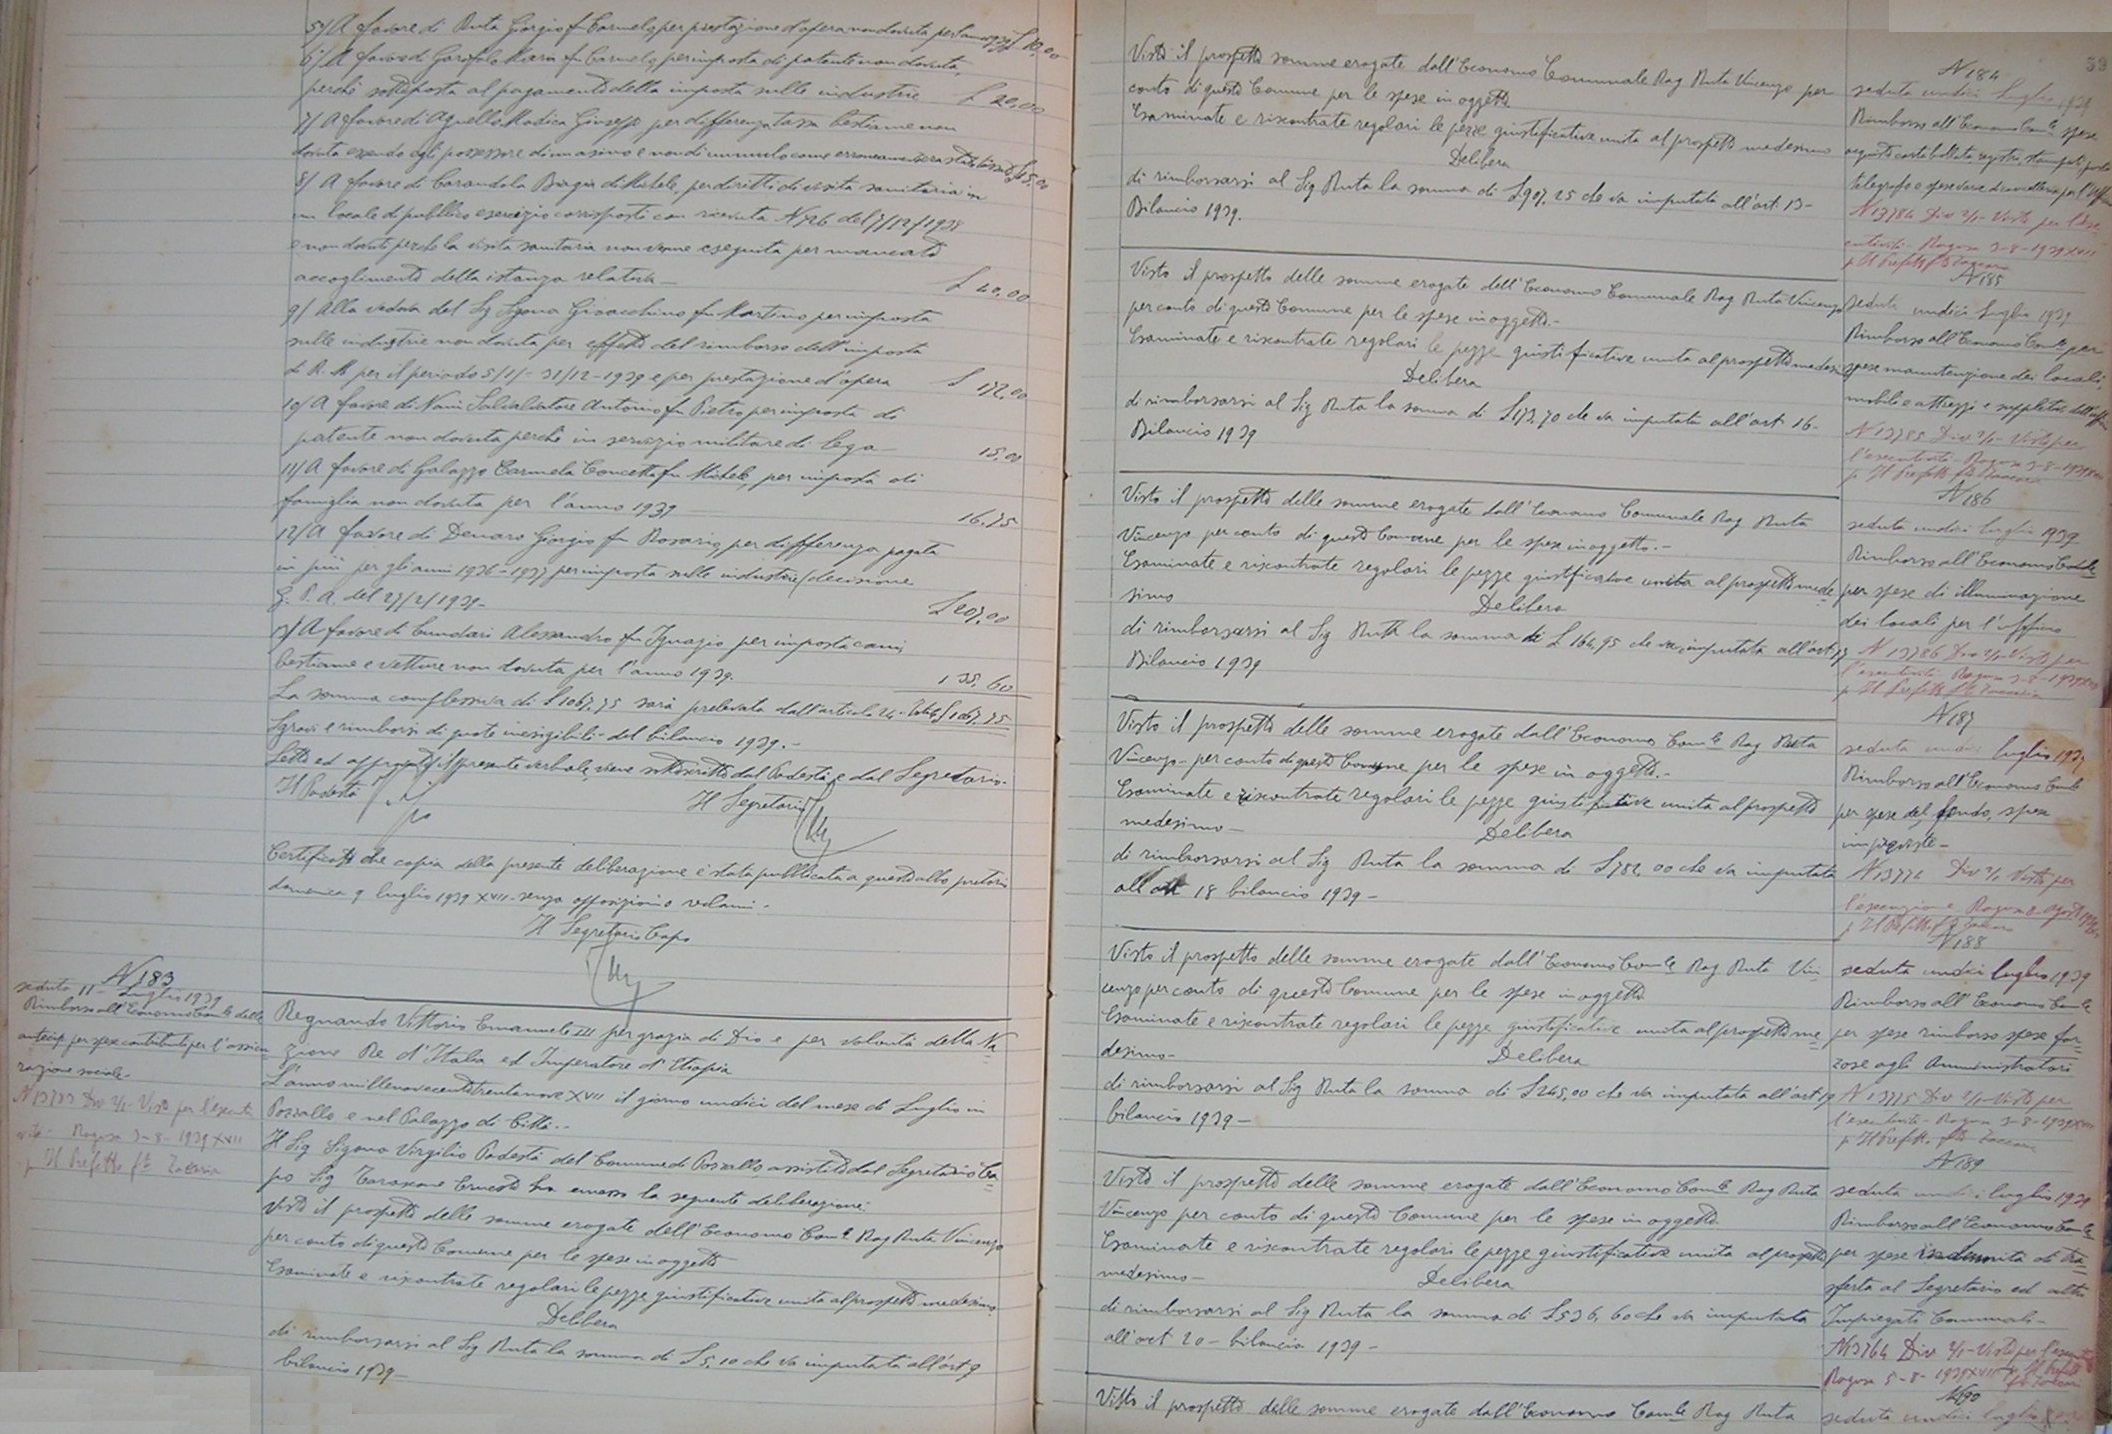 5) A favore di Ruta Giorgio fu Carmelo per prestazione d'opera non dovuta per l'anno 1939 £ 10,00
6) A favore di Garofalo Maria fu Carmelo, per imposta di patente non dovuta,
perché sottoposta al pagamento della imposta sulle industrie £ 20,00
7) A favore di Agnello Modica Giuseppe per differenza tassa bestiame non
dovuta essendo egli possessore di un asino e non di un mulo come erroneamente era stato tassato £ 15,00
8) A favore di Carandola Biagia di Michele, per diritti di visita sanitaria in
un locale di pubblico esercizio corrisposti con ricevuta N 726 del 7/12/1938
e non dovuti perché la visita sanitaria non venne eseguita per mancato
accoglimento della istanza relativa £ 40,00
9) Alla vedova del Sig Sigona Gioacchino fu Martino per imposta
sulle industrie non dovuta per effetto del rimborso dell'imposta
di R. M per il periodo 5/1/- 31/12-1939 e per prestazione d'opera £ 172,00
10) A favore di Nani Salvatore Antonino fu Pietro per imposta di
patente non dovuta perché in servizio militare di leva 15,00
11) A favore di Galazzo Carmela Concetta fu Michele, per imposta di
famiglia non dovuta per l'anno 1939 16,75
12) A favore di Denaro Giorgio fu Rosario, per differenza pagata
in più per gli anni 1936-1937 per imposta sulle industrie (decisione
G. P. A. del 27/2/1939- £ 207,00
13) A favore di Cundari Alessandro fu Ignazio per imposta cani
bestiame e vetture non dovuta per l'anno 1939. 135,60
La somma complessiva di £ 1067,75 sarà prelevata dall'articolo 24- Totale £ 1067,75
Sgravi e rimborsi di quote inesigibili- del bilancio 1939.-
Letto ed approvato il presente verbale viene sottoscritto dal Podestà e dal Segretario.
Il Podestà Il Segretario
Certificato che copia della presente deliberazione è stata pubblicata a questo albo pretorio
domenica 9 luglio 1939 XVII- senza opposizioni o reclami-
Il Segretario Capo
N 183
seduta 11- Luglio 1939
Rimborso all'Economo Com.le delle
anticip. per spese contributi per l'assicu
razione sociale-
N 13783 Div 2/1- Visto per l'esecuti
vità- Ragusa 3-8-1939 XVII
p Il Prefetto f.to Zaccaria
Regnando Vittorio Emanuele III per grazia di Dio e per volontà della Na
zione Re d'Italia ed Imperatore d'Etiopia
L'anno millenovecentotrentanove XVII il giorno undici del mese di Luglio in
Pozzallo e nel Palazzo di Città.-
Il Sig Sigona Virgilio Podestà del Comune di Pozzallo, assistito dal Segretario Ca
po Sig Tarascone Ernesto ha emesso la seguente deliberazione:
Visto il prospetto delle somme erogate dell'Economo Com.le Rag Ruta Vincenzo
per conto di questo Comune per le spese in oggetto
Esaminate e riscontrate regolari le pezze giustificative unita al prospetto medesimo
Delibera
di rimborsarsi al Sig Ruta la somma di £ 5,10 che va imputata all'art 9
bilancio 1939-
39
Visto il prospetto somme erogate dall'Economo Comunale Rag Ruta Vincenzo per
conto di questo Comune per le spese in oggetto
Esaminate e riscontrate regolari le pezze giustificative unita al prospetto medesimo
Delibera
di rimborsarsi al Sig Ruta la somma di £ 907,25 che va imputata all'art 13-
Bilancio 1939.
N 184
seduta undici luglio 1939
Rimborso all'Economo Com.le spese
acquisto carta bollata, registri, stampati, posta
telegrafo e spese varie di cancelleria per l'uff
N 13784 Div 2/1- Visto per l'ese
cutività- Ragusa 3-8-1939 XVII
p Il Prefetto f.to Zaccaria
Visto il prospetto delle somme erogate dell'Economo Comunale Rag Ruta Vincenzo
per conto di questo Comune per le spese in oggetto.-
Esaminate e riscontrate regolari le pezze giustificative unita al prospetto medesimo
Delibera
di rimborsarsi al Sig Ruta la somma di £ 173,70 che va imputata all'art 16-
Bilancio 1939
N 185
seduta undici Luglio 1939
Rimborso all'Economo Com.le per
spese manutenzione dei locali,
mobili e attrezzi e suppellettili dell'uffi
N 13785 Div 2/1- Visto per
l'esecutività- Ragusa 3-8-1939
p Il Prefetto f.to Zaccaria
Visto il prospetto delle somme erogate dall'Economo Comunale Rag Ruta
Vincenzo per conto di questo Comune per le spese in oggetto.-
Esaminate e riscontrate regolari le pezze giustificative unita al prospetto mede
simo Delibera
di rimborsarsi al Sig Ruta la somma di £ 164,95 che va, imputata all'art 17
Bilancio 1939
N 186
seduta undici luglio 1939
Rimborso all'Economo Com.le
per spese di illuminazione
dei locali per l'ufficio
N 13786 Div 2/1- Visto per
l'esecutività- Ragusa 3-8-1939
p Il Prefetto f.to Zaccaria
Visto il prospetto delle somme erogate dall'Economo Com.le Rag Ruta
Vincenzo- per conto di questo Comune per le spese in oggetto.-
Esaminate e riscontrate regolari le pezze giustificative unita al prospetto
medesimo- Delibera
di rimborsarsi al Sig Ruta la somma di £ 782,00 che va imputata
all'art 18 bilancio 1939-
N 187
seduta undici luglio 1939
Rimborso all'Economo Com.le
per spese del fondo, spese
impreviste-
N 13774 Div 2/1 Visto per
l'esecuzione Ragusa 8- agosto 1939
p Il Prefetto f.to Zaccaria
Visto il prospetto delle somme erogate dall'Economo Com.le Rag Ruta Vin
cenzo per conto di questo Comune per le spese in oggetto
Esaminate e riscontrate regolari le pezze giustificative unita al prospetto me
desimo- Delibera
di rimborsarsi al Sig Ruta la somma di £ 245,00 che va imputata all'art 19
bilancio 1939-
N 188
seduta undici luglio 1939
Rimborso all'Economo Com.le
per spese rimborso spese for
zose agli Amministratori
N 13775 Div 2/1- Visto per
l'esecutività- Ragusa 3-8-1939 XVII
p Il Prefetto f.to Zaccaria
Visto il prospetto delle somme erogate dall'Economo Com.le Rag Ruta
Vincenzo per conto di questo Comune per le spese in oggetto
Esaminate e riscontrate regolari le pezze giustificative unita al prospetto
medesimo- Delibera
di rimborsarsi al Sig Ruta la somma di £ 536,60 che va imputata
all'art 20- bilancio 1939-
N 189
seduta undici luglio 1939
Rimborso all'Economo Com.le
per spese indennità di tra
sferta al Segretario ed altri
Impiegati Comunali-
N 13764 Div 2/1- Visto per l'esecuti
Ragusa 5-8-1939 XVII p Il Prefetto
f.to Zaccaria
Visto il prospetto delle somme erogate dall'Economo Com.le Rag Ruta
N 190
seduta undici luglio 1939